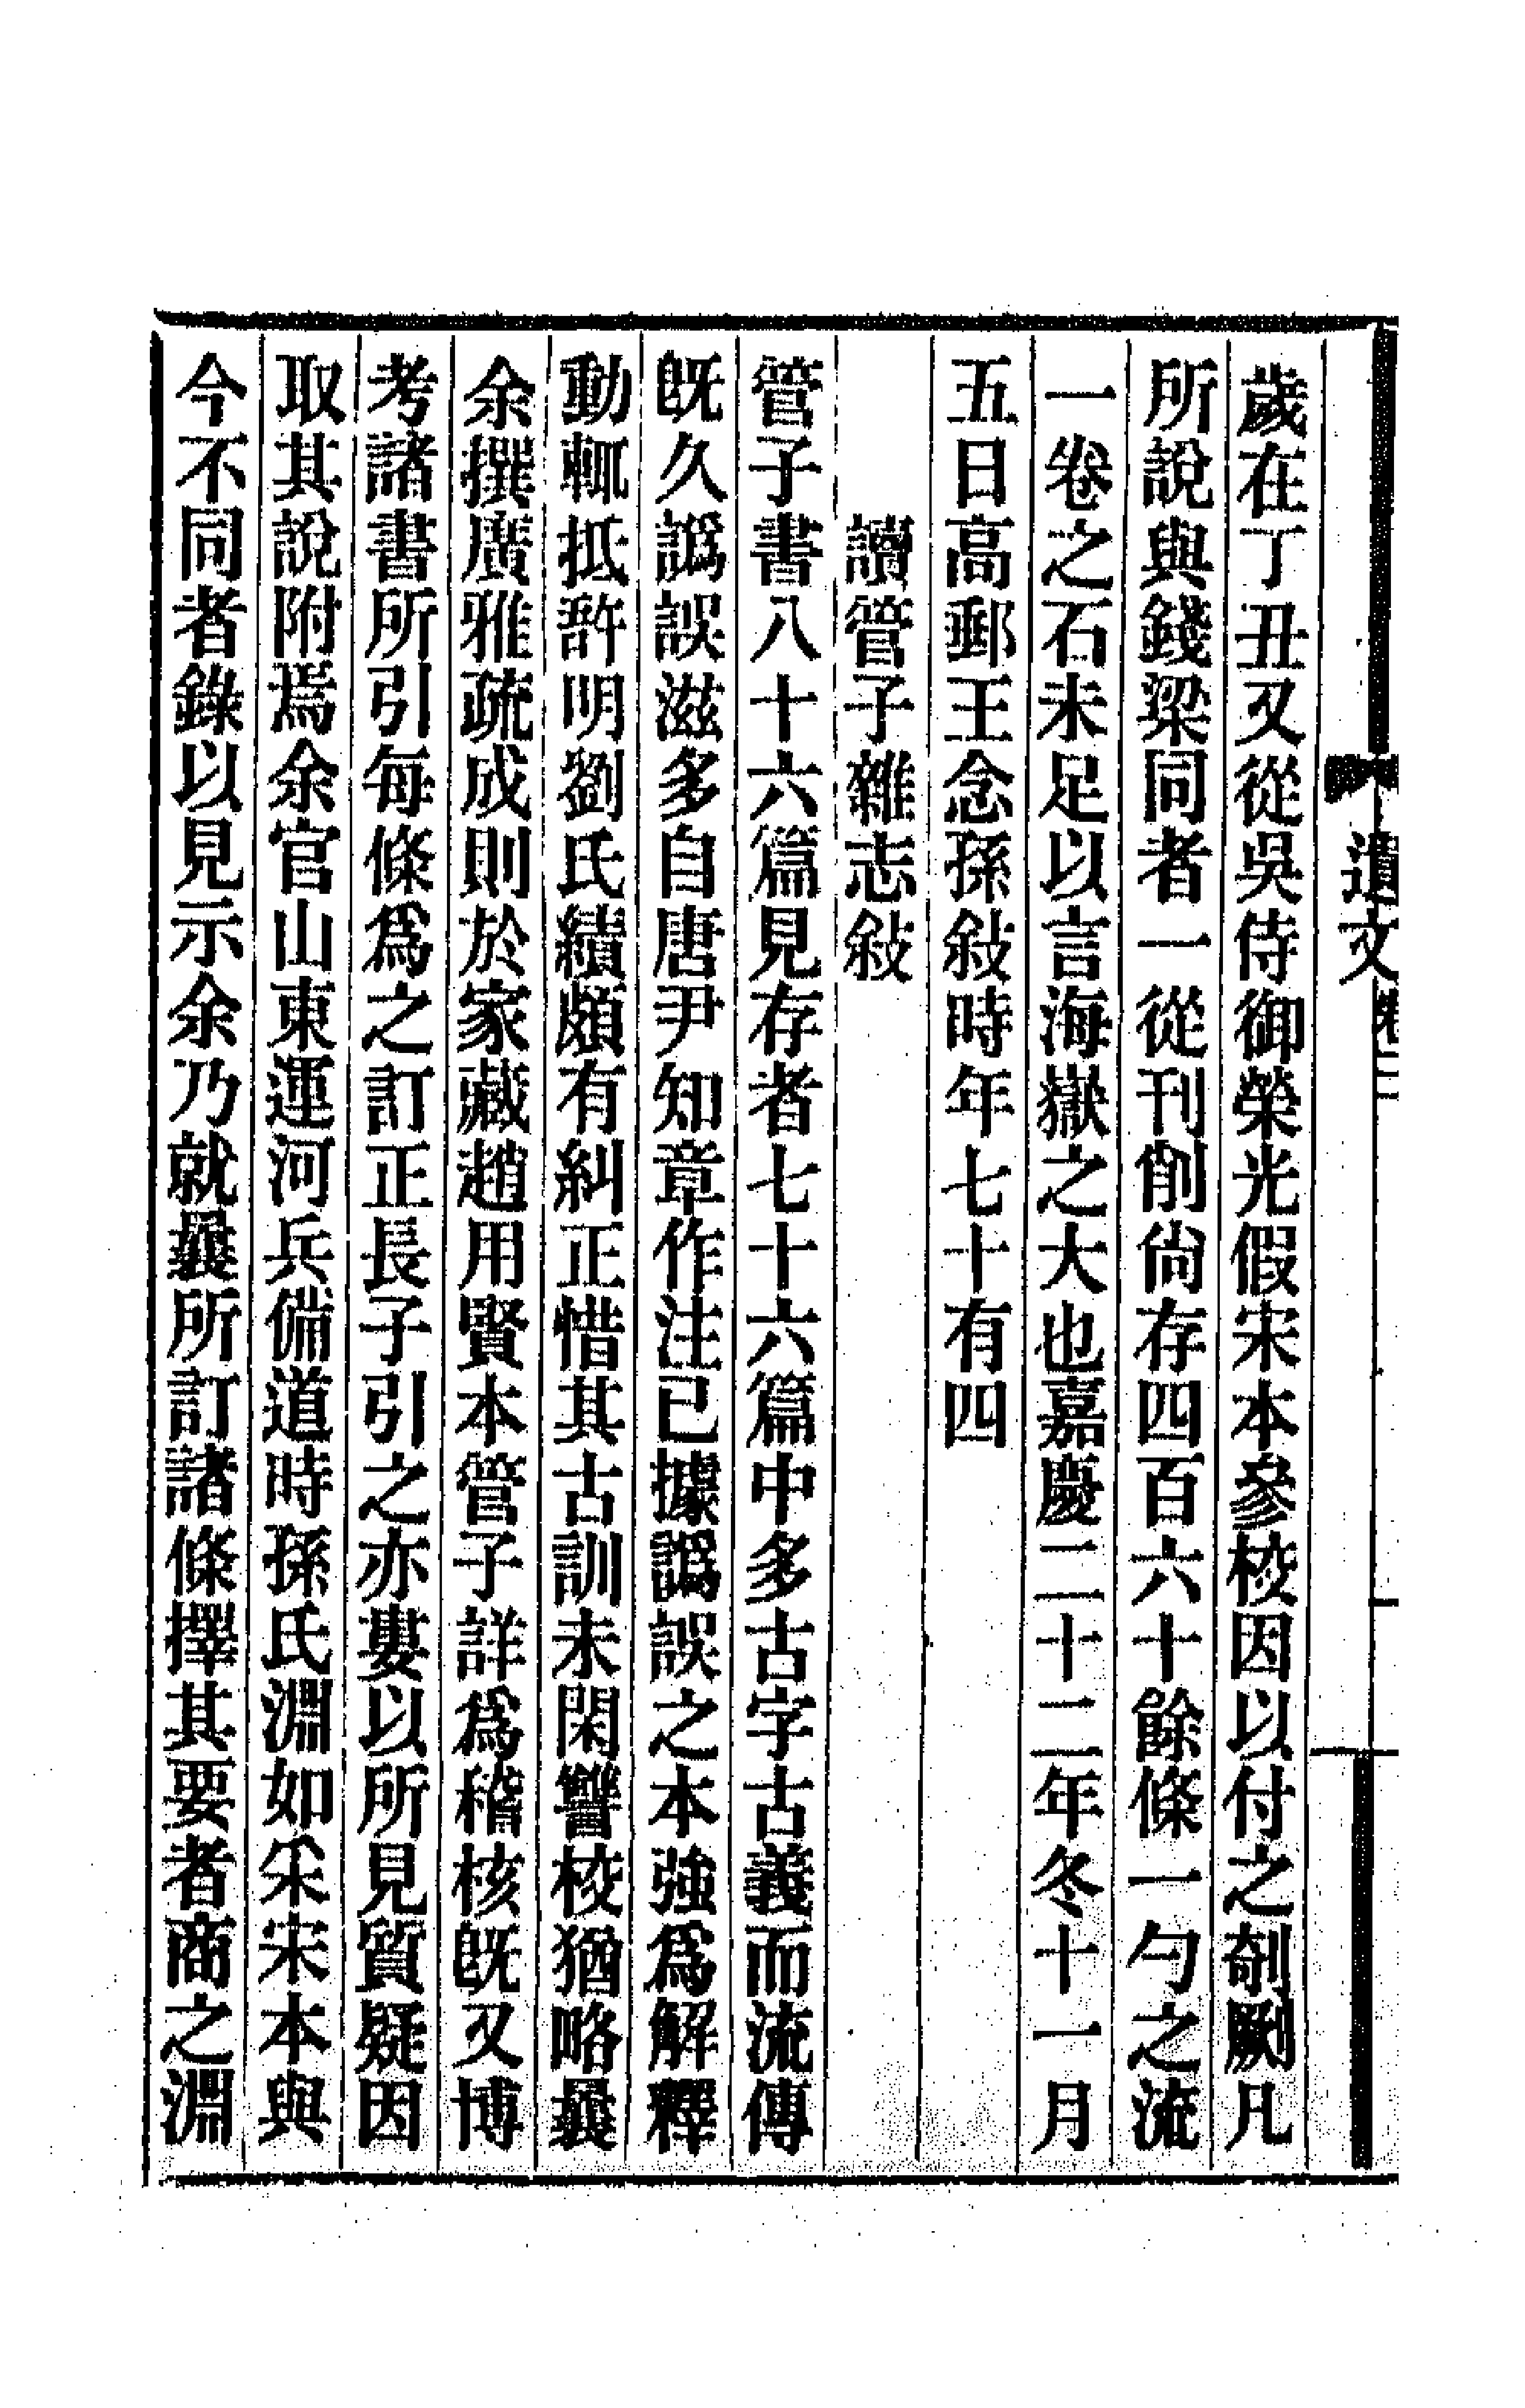 遺文 卷二
歲在丁丑又從吳侍御榮光假宋本參校因以付之剞劂凡
所說與錢梁同者一從刊削尙存四百六十餘條一勺之流
一卷之石未足以言海嶽之大也嘉慶二十二年冬十一月
五日高郵王念孫敍時年七十有四
讀管子雜志敍
管子書八十六篇見存者七十六篇中多古字古義而流傳
旣久譌誤滋多自唐尹知章作注已據譌誤之本強爲解釋
動輒抵牾明劉氏績頗有糾正惜其古訓未閑讐校猶略曩
余撰廣雅疏成則於家藏趙用賢本管子詳爲稽核旣又博
考諸書所引每條爲之訂正長子引之亦婁以所見質疑因
取其說附焉余官山東運河兵備道時孫氏淵如采宋本與
今不同者錄以見示余乃就曩所訂諸條擇其要者商之淵